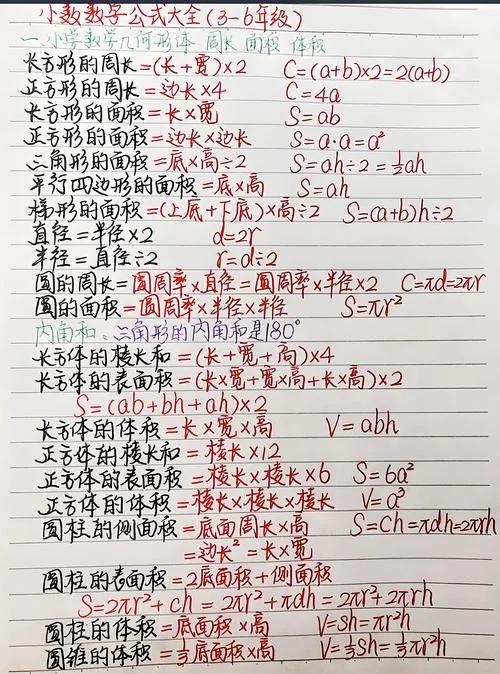 小数数字公式大全(3-6年级)
一.小学数学几何形体 周长 面积 体积
长方形的周长=(长+宽)×2 C=(a+b)×2=2(a+b)
正方形的周长=边长×4 C=4a
长方形的面积=长×宽 S=ab
正方形的面积=边长×边长 S=a·a=a²
三角形的面积=底×高÷2 S=ah÷2=½ah
平行四边形的面积=底×高 S=ah
梯形的面积=(上底+下底)×高÷2 S=(a+b)h÷2
直径=半径×2 d=2r
半径=直径÷2 r=d÷2
圆的周长=圆周率×直径=圆周率×半径×2 C=πd=2πr
圆的面积=圆周率×半径×半径 S=πr²
内角和:三角形的内角和是180°
长方体的棱长和=(长+宽+高)×4
长方体的表面积=(长×宽+宽×高+长×高)×2
S=(ab+bh+ah)×2
长方体的体积=长×宽×高 V=abh
正方体的棱长和=棱长×12
正方体的表面积=棱长×棱长×6 S=6a²
正方体的体积=棱长×棱长×棱长 V=a³
圆柱的侧面积=底面周长×高 S=Ch=πdh=2πrh
=边长²=长×宽
圆柱的表面积=2底面积+侧面积
S=2πr²+ch=2πr²+πdh=2πr²+2πrh
圆柱的体积=底面积×高 V=sh=πr²h
圆锥的体积=⅓底面积×高 V=⅓sh=⅓πr²h